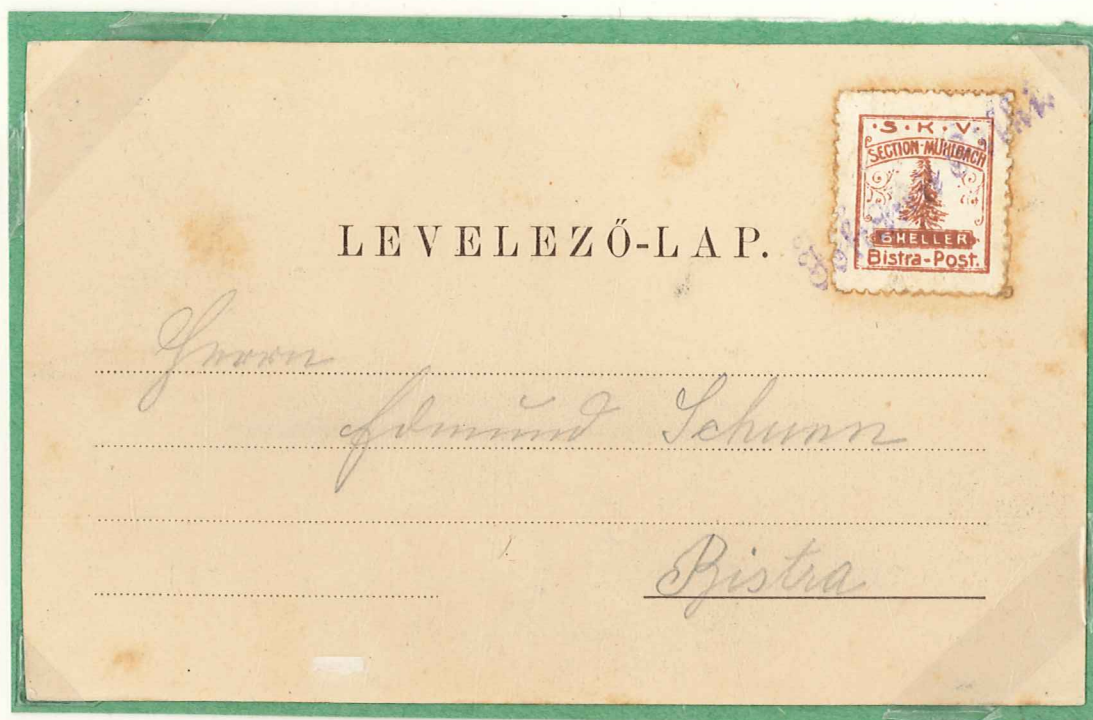 LEVELEZŐ-LAP.
· S · K · V ·
SECTION-MÜHLBACH
6 HELLER
Bistra-Post.
Herrn
Edmund Schunn
Bistra